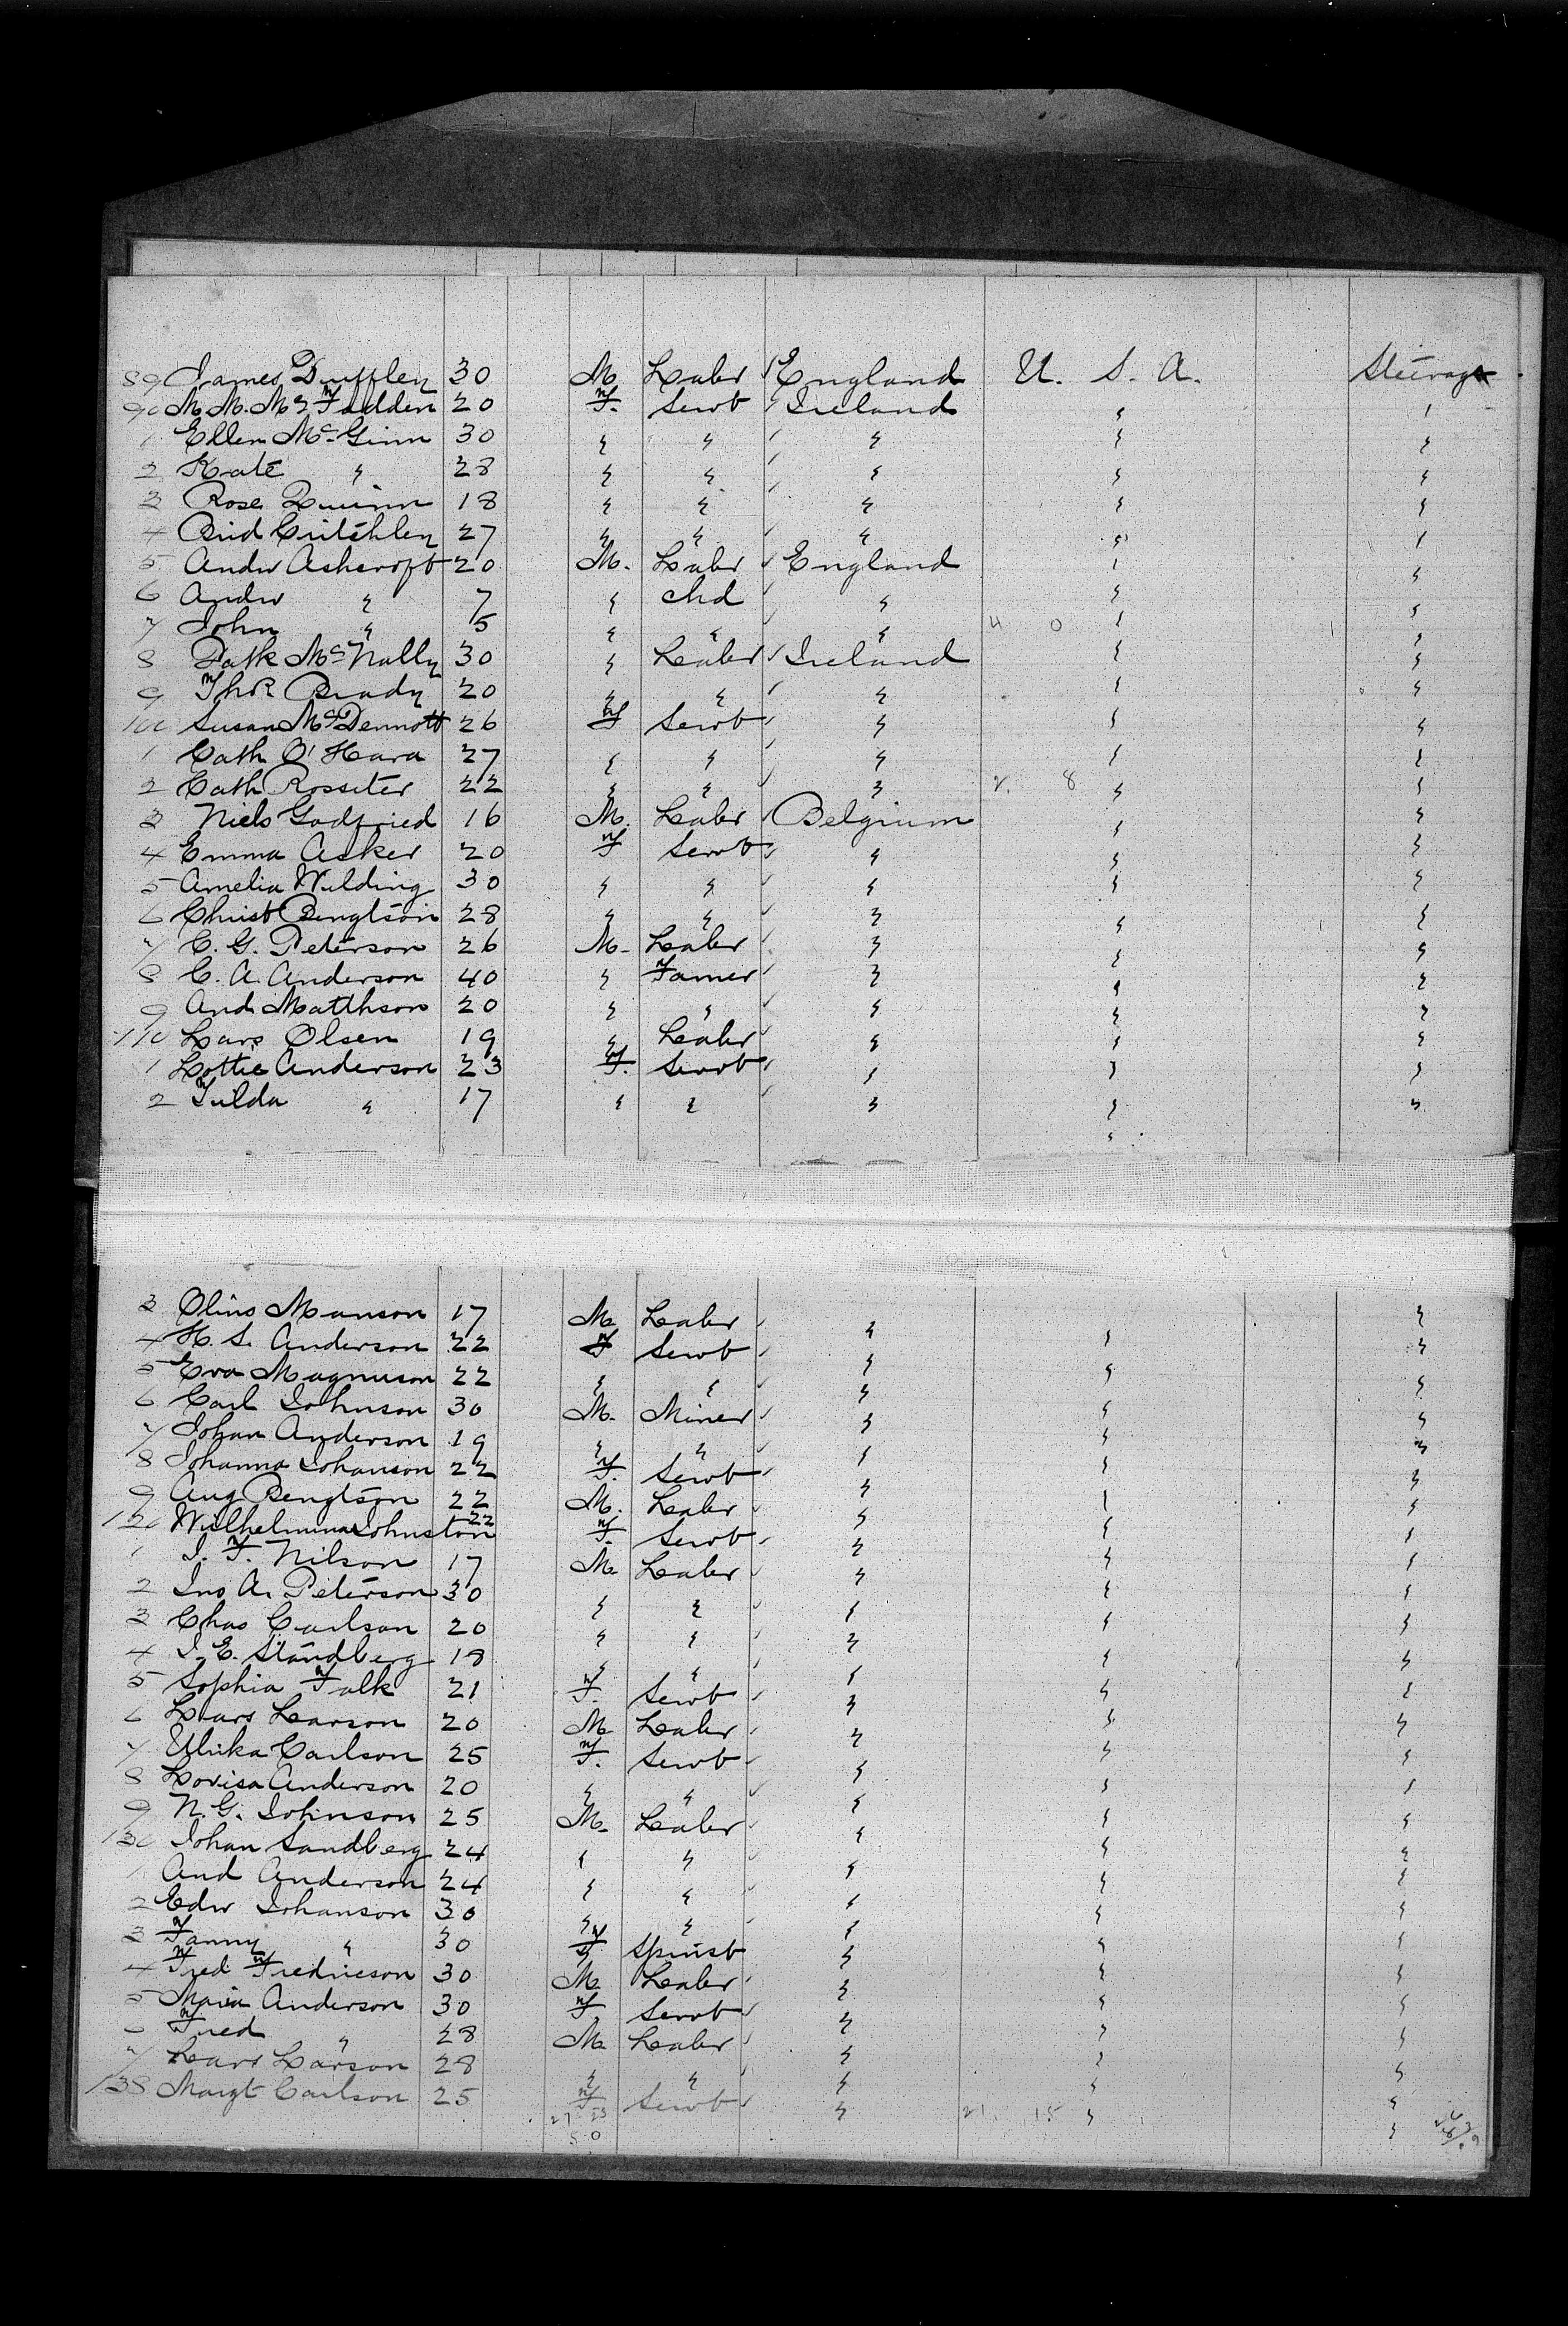 89 James Duffley 30 M. Labr England U. S. A. Steerage
90 M. M. McFadden 20 F. Servt Ireland " "
1 Ellen McGinn 30 " " " " "
2 Kate " 28 " " " " "
3 Rose Quinn 18 " " " " "
4 Brid Critchley 27 " " " " "
5 Andw Ashcroft 20 M. Labr England " "
6 Andw " 7 " chd " " "
7 John " 5 " " " 4 0 " "
8 Patk McNally 30 " Labr Ireland " "
9 Thos Brady 20 " " " " "
100 Susan McDermott 26 F Servt " " "
1 Cath O'Hara 27 " " " " "
2 Cath Rossiter 22 " " " 2. 8 " "
3 Niels Godfried 16 M. Labr Belgium " "
4 Emma Asker 20 F Servt " " "
5 Amelia Wilding 30 " " " " "
6 Christ Bengtson 28 " " " " "
7 C. G. Peterson 26 M. Labr " " "
8 C. A. Anderson 40 " Famer " " "
9 And Matthson 20 " " " " "
110 Lars Olsen 19 " Labr " " "
1 Lottie Anderson 23 F. Servt " " "
2 Tilda " 17 " " " " "
"
3 Olins Manson 17 M Labr " " "
4 H. S. Anderson 22 F Servt " " "
5 Eva Magnuson 22 " " " " "
6 Carl Johnson 30 M. Miner " " "
7 Johan Anderson 19 " " " " "
8 Johanna Johanson 22 F. Servt " " "
9 Aug Bengtson 22 M. Labr " " "
120 Wilhelmina Johnston 22 F. Servt " " "
1 J. F. Nilson 17 M. Labr " " "
2 Jno A. Peterson 30 " " " " "
3 Chas Carlson 20 " " " " "
4 J. E. Standberg 18 " " " " "
5 Sophia Falk 21 F. Servt " " "
6 Lars Larson 20 M Labr " " "
7 Ulrika Carlson 25 F. Servt " " "
8 Lovisa Anderson 20 " " " " "
9 N. G. Johnson 25 M. Labr " " "
130 Johan Sandberg 24 " " " " "
1 And Anderson 24 " " " " "
2 Edw Johanson 30 " " " " "
3 Fanny " 30 F Spinst " " "
4 Fred Fredricson 30 M Labr " " "
5 Maria Anderson 30 F. Servt " " "
6 Fred " 28 M. Labr " " "
7 Lars Larson 28 " " " " "
138 Margt Carlson 25 F Servt " 21. 15 " "
27 23 "
50